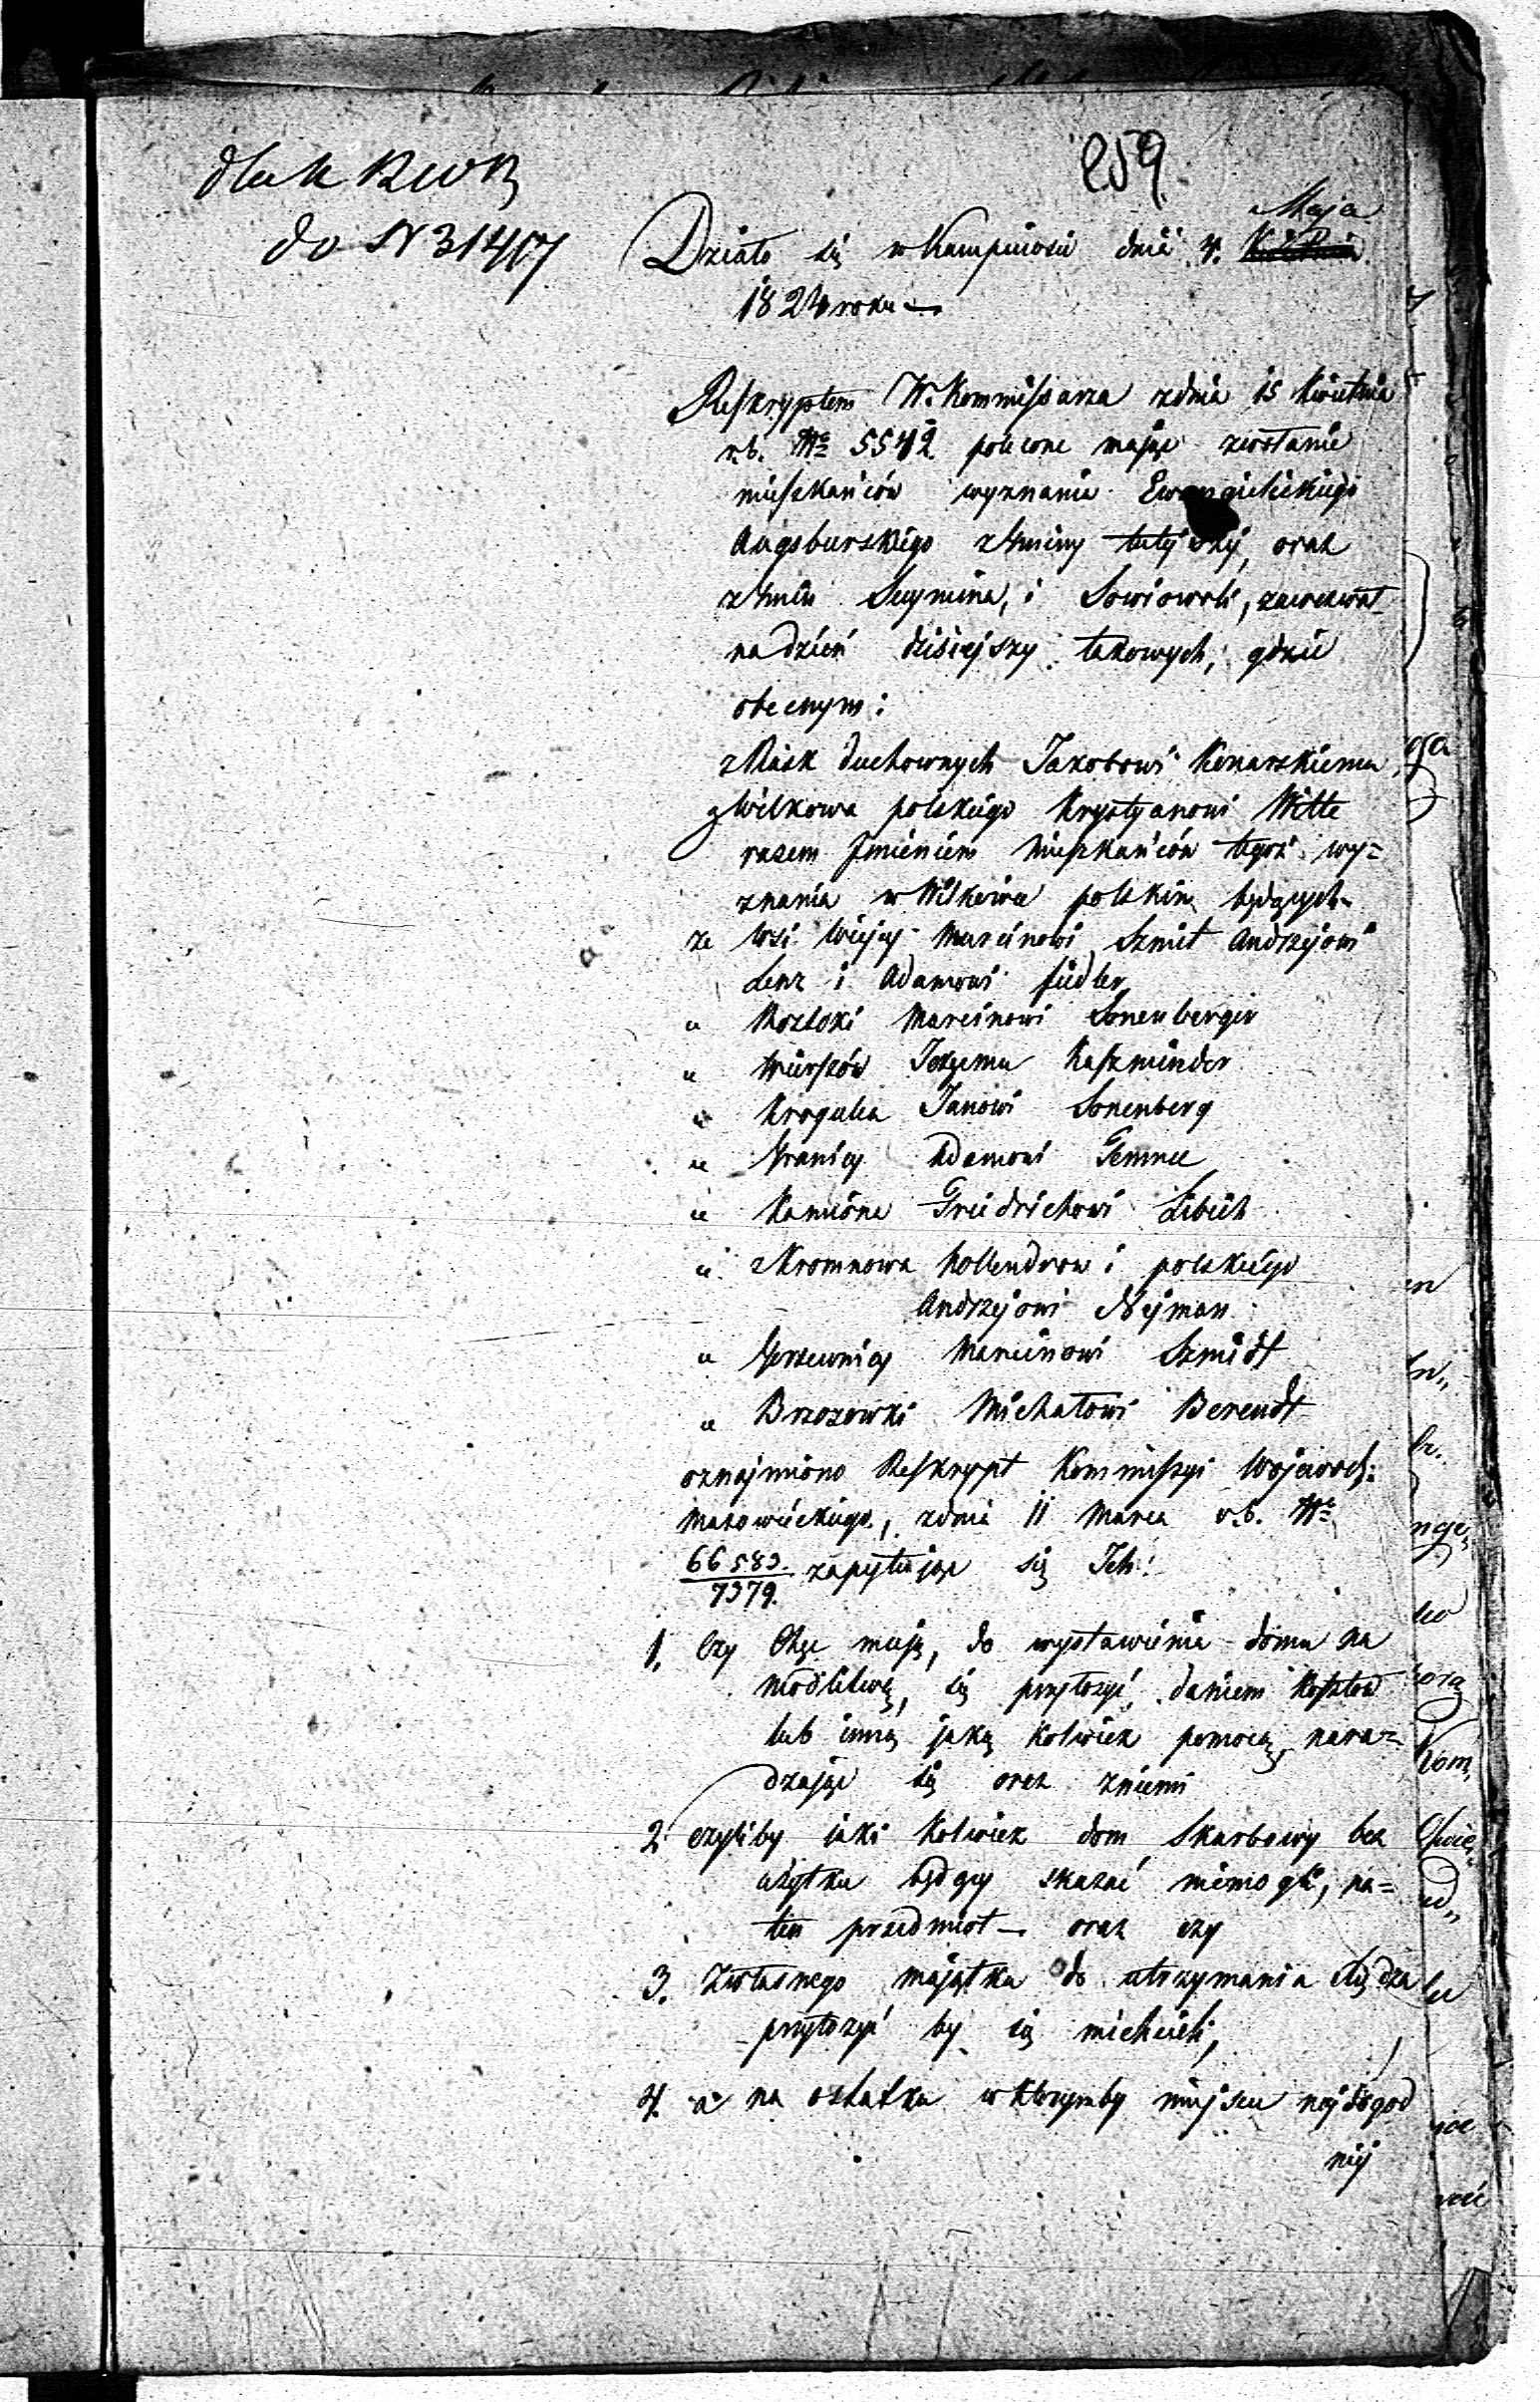 259
do N 31417
Działo się w Kampinosie dnia 4. Maja
1824 roku —
Reskryptem W. Kommissarza z dnia 15 Kwietnia
r.b. No 5542 polecone mając zwołanie
mieszkańców wyznania Ewangielickiego
Augsburskiego z Gminy tutejszej, oraz
z Gmin Secymina, i Sowiowoli, zawezwał
na dzień dzisiejszy takowych, gdzie
obecnym:
z Piask duchownych Jakobowi Konarskiemu,
z Wilkowa polskiego Krystyanowi Witte
razem Imieniem Mieszkańców tegoż wy=
znania w Wilkowie polskim będących
ze Wsi Wiejcy Marcinowi Szmit Andrzejowi
Lenz i Adamowi Fiedler
„ Roztoki Marcinowi Sonenberger
„ Wierszów Jerzemu Kaszminder
„ Krogulca Janowi Sonenberg
„ Granicy Adamowi Gemnee
„ Kamióna Freidrichowi Libich
„ z Kromnowa hollendrow i polskiego
Andrzejowi Nejman
„ Grzewnicy Marcinowi Szmidt
„ Brzozowki Michałowi Berendt
oznajmiono Reskrypt Kommissyi Wojewodz:
Mazowieckiego, z dnia 11 Marca r.b. No
66583/7379. zapytując się Ich:
1. Czy Chęć mają, do wystawienia domu na
modlitwę, się przyłożyć, daniem Kosztów
lub inną jaką kolwiek pomocą, nara=
dzając się oraz z niemi
2. czyliby jaki kolwiek dom Skarbowy bez
użytku będący wskazać niemogli, na=
ten przedmiot — oraz czy
3. Z własnego majątku do utrzymania Księdza
przyłożyć by się niechcieli,
4. a na ostatku w którymby miejscu najdogod
niej